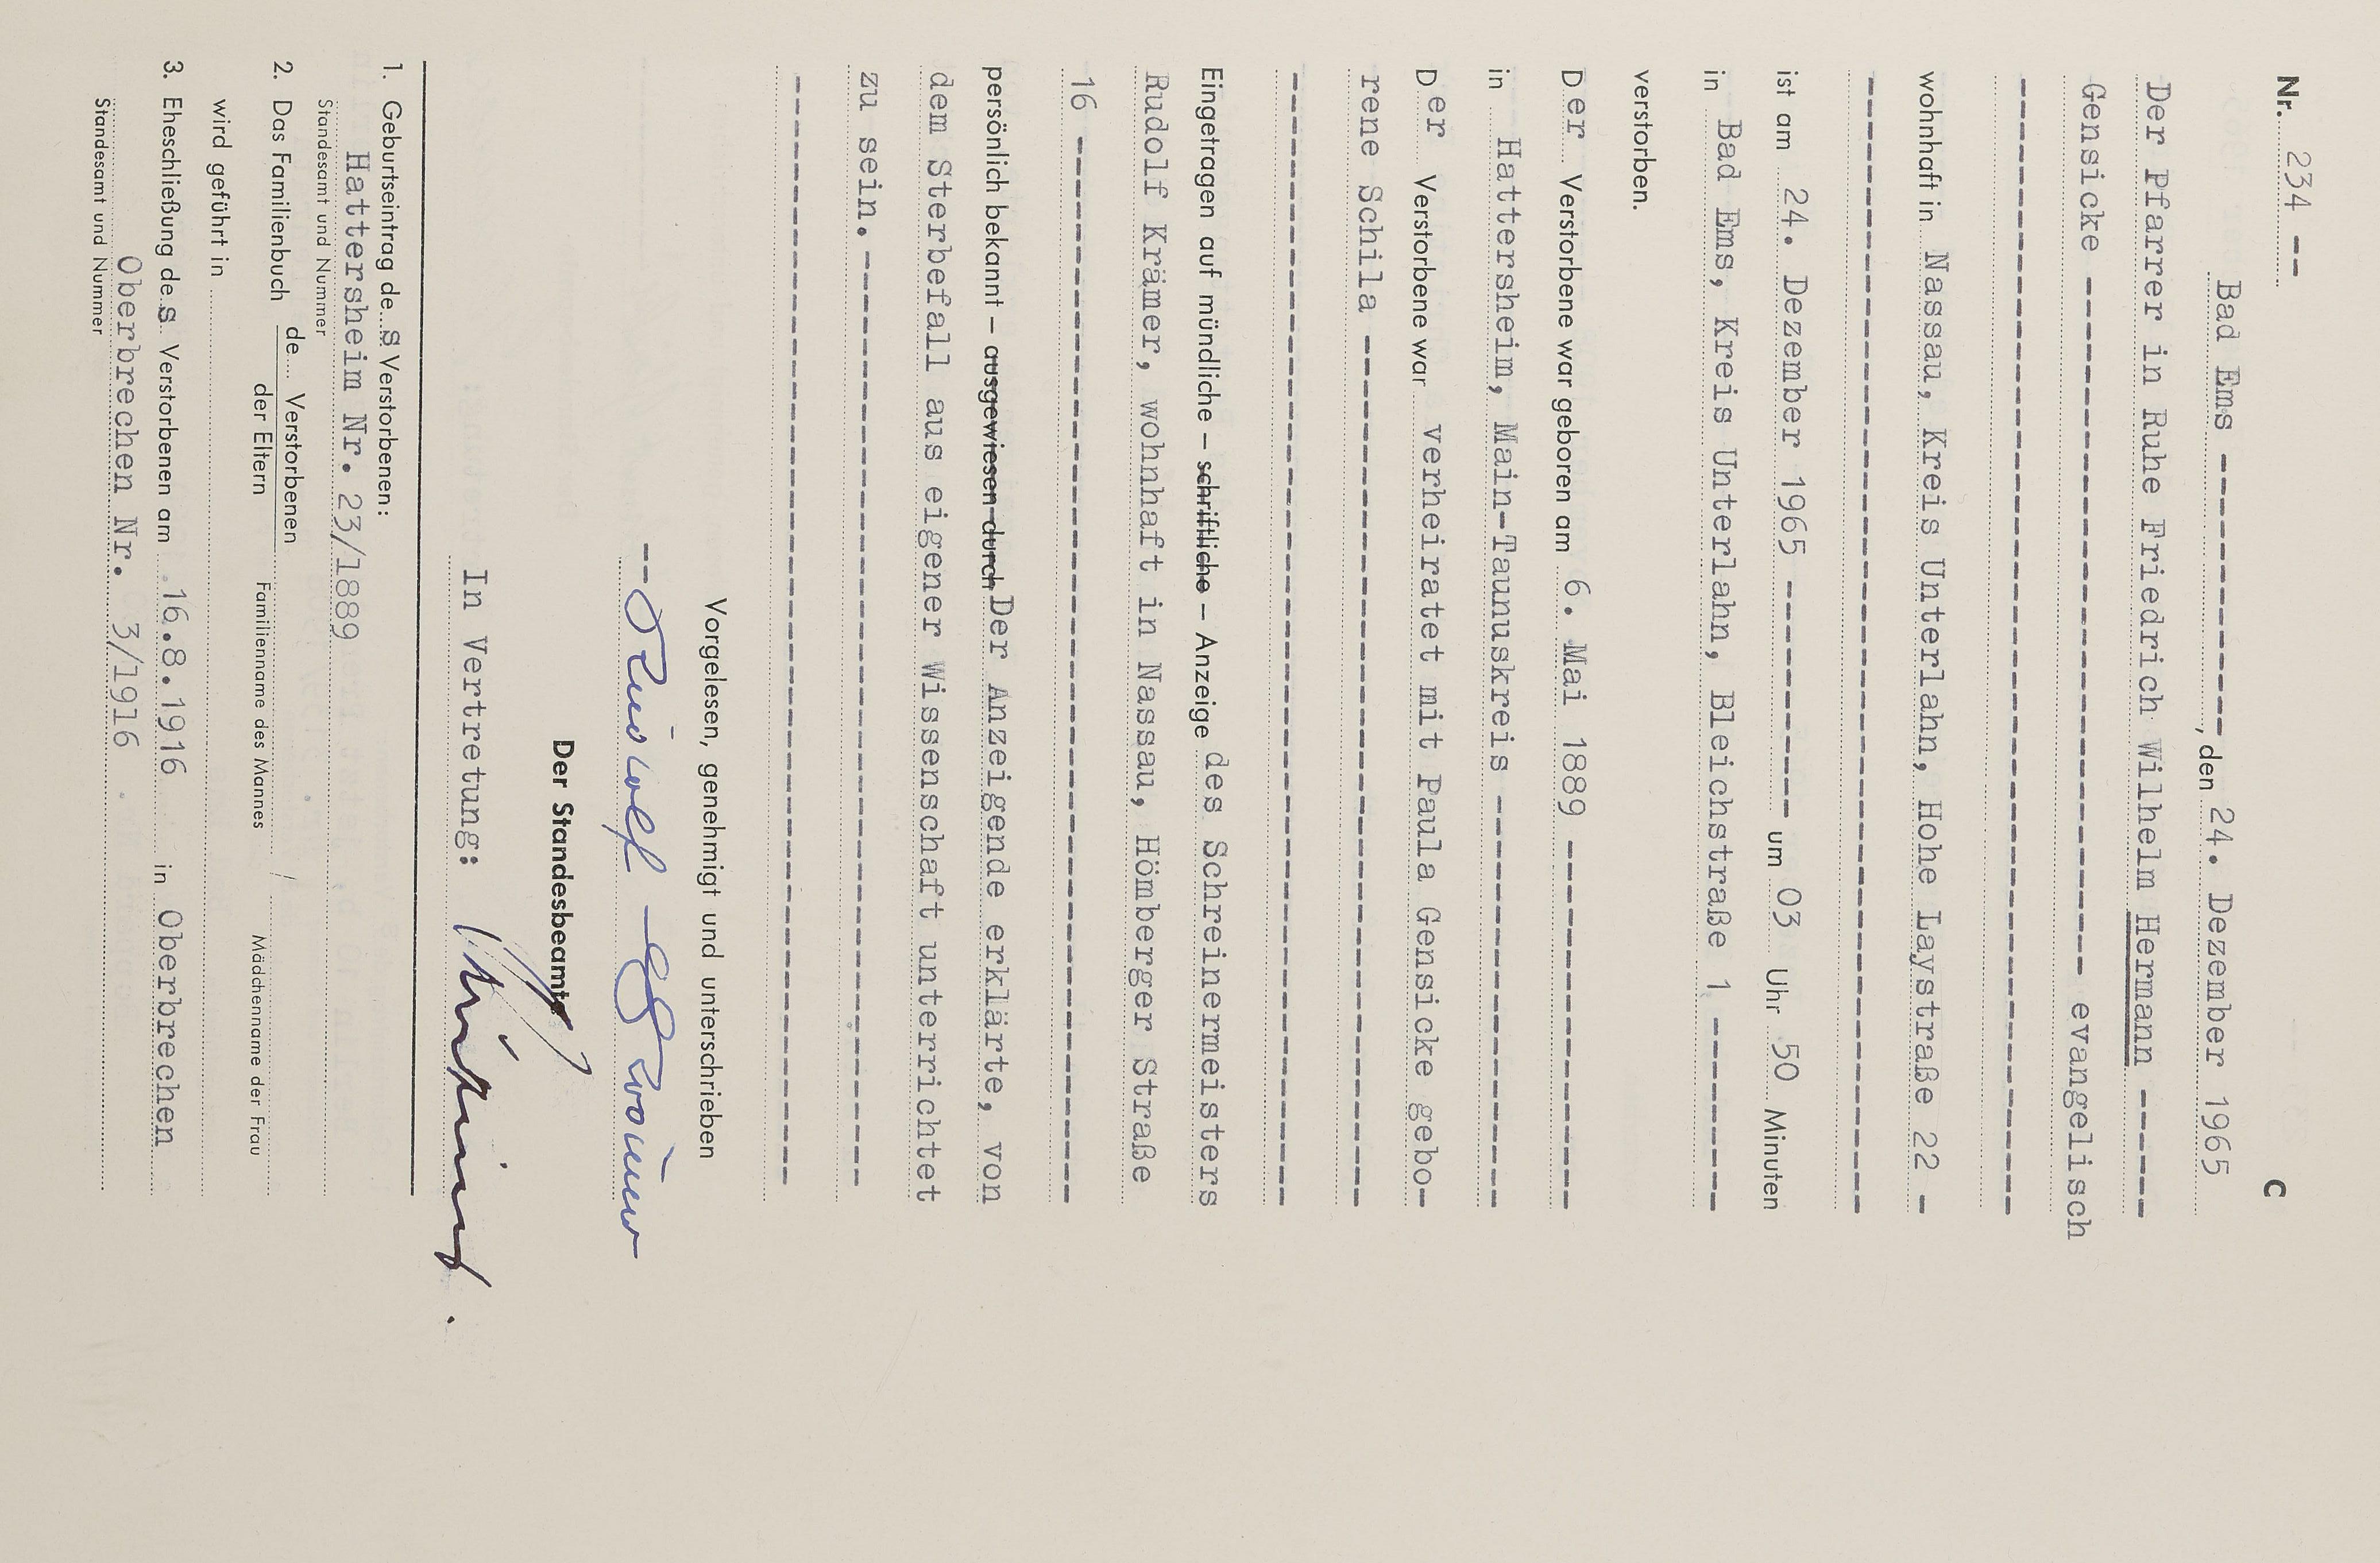 Nr. 234 -- C
Bad Ems ----------------, den 24. Dezember 1965
Der Pfarrer in Ruhe Friedrich Wilhelm Hermann ------
Gensicke ------------------------------ evangelisch
wohnhaft in Nassau, Kreis Unterlahn, Hohe Laystraße 22 -
ist am 24. Dezember 1965 ------------ um 03 Uhr 50 Minuten
in Bad Ems, Kreis Unterlahn, Bleichstraße 1 ---------
verstorben.
Der Verstorbene war geboren am 6. Mai 1889 ----------------
in Hattersheim, Main-Taunuskreis ------------------
Der Verstorbene war verheiratet mit Paula Gensicke gebo-
rene Schila --------------------------------------
Eingetragen auf mündliche – schriftliche – Anzeige des Schreinermeisters
Rudolf Krämer, wohnhaft in Nassau, Hömberger Straße
16 ------------------------------------------------
persönlich bekannt – ausgewiesen durch Der Anzeigende erklärte, von
dem Sterbefall aus eigener Wissenschaft unterrichtet
zu sein.-------------------------------------------
Vorgelesen, genehmigt und unterschrieben
-- Rudolf Krämer
Der Standesbeamte
In Vertretung:
1. Geburtseintrag des Verstorbenen:
Hattersheim Nr. 23/1889
Standesamt und Nummer
2. Das Familienbuch de Verstorbenen
der Eltern Familienname des Mannes / Mädchenname der Frau
wird geführt in
3. Eheschließung des Verstorbenen am 16.8.1916 in Oberbrechen
Oberbrechen Nr. 3/1916
Standesamt und Nummer